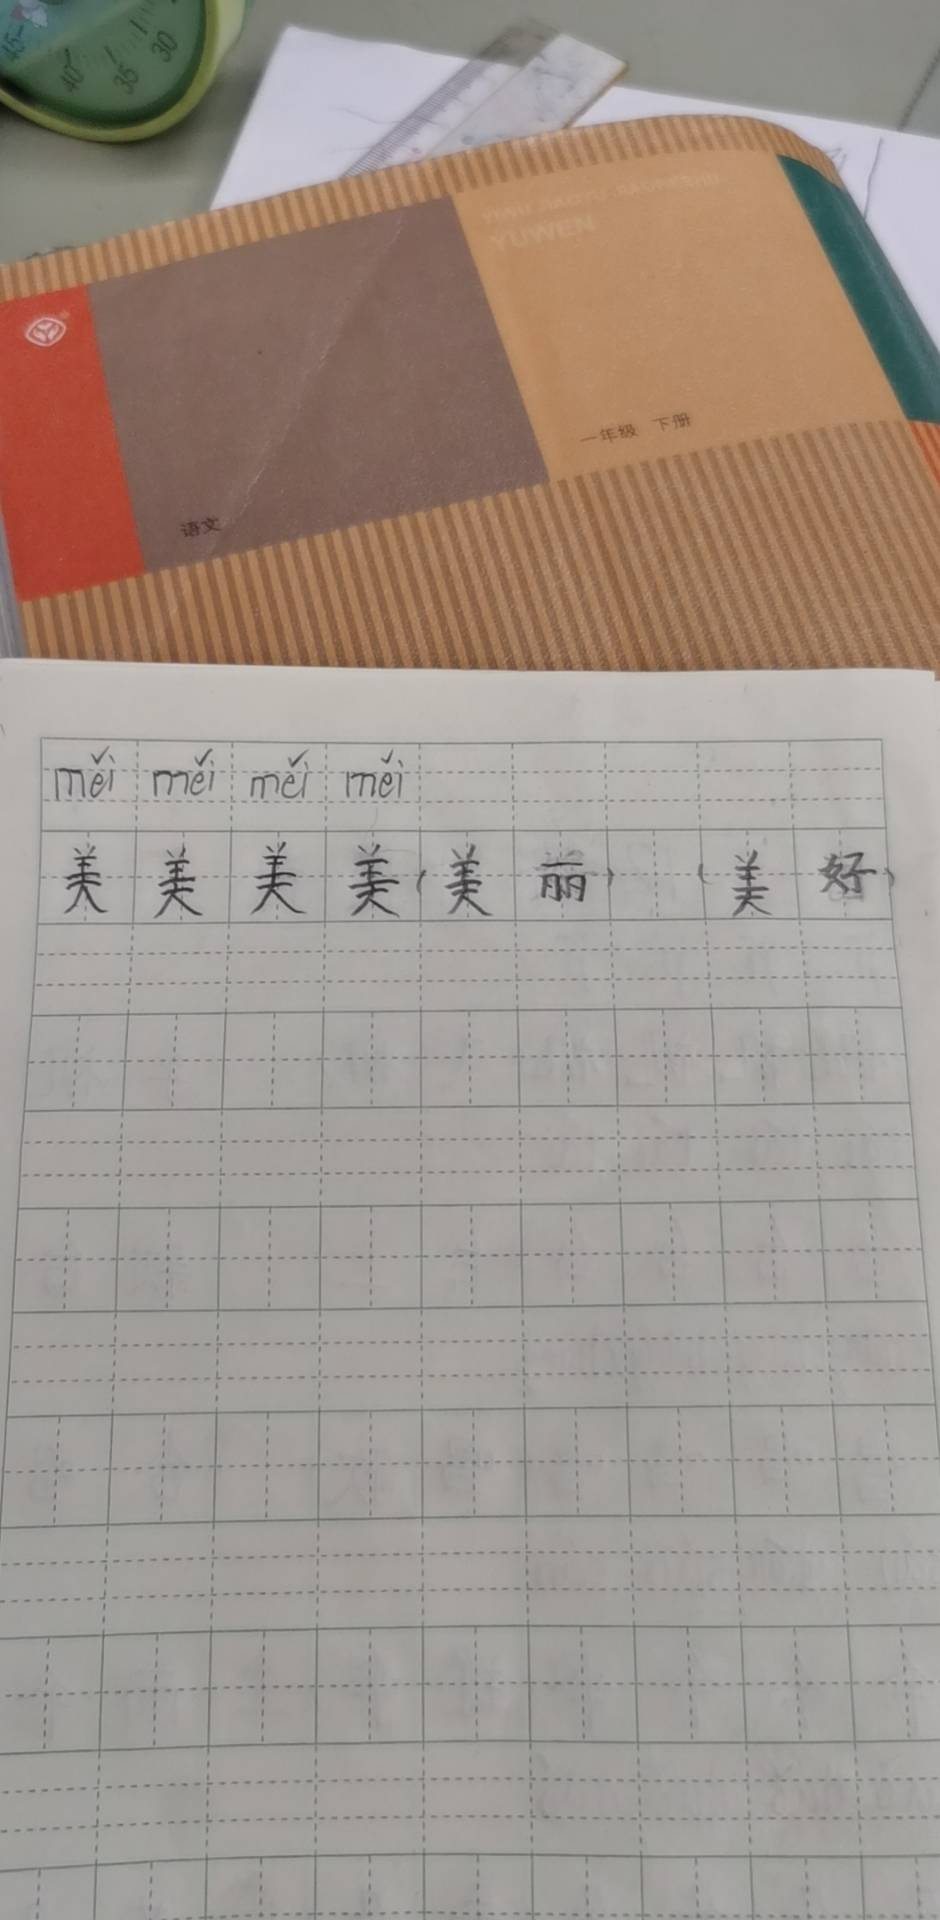 45 40 35 30
YUWEN
一年级 下册
语文
měi měi měi měi
美 美 美 美 (美 丽) (美 好)